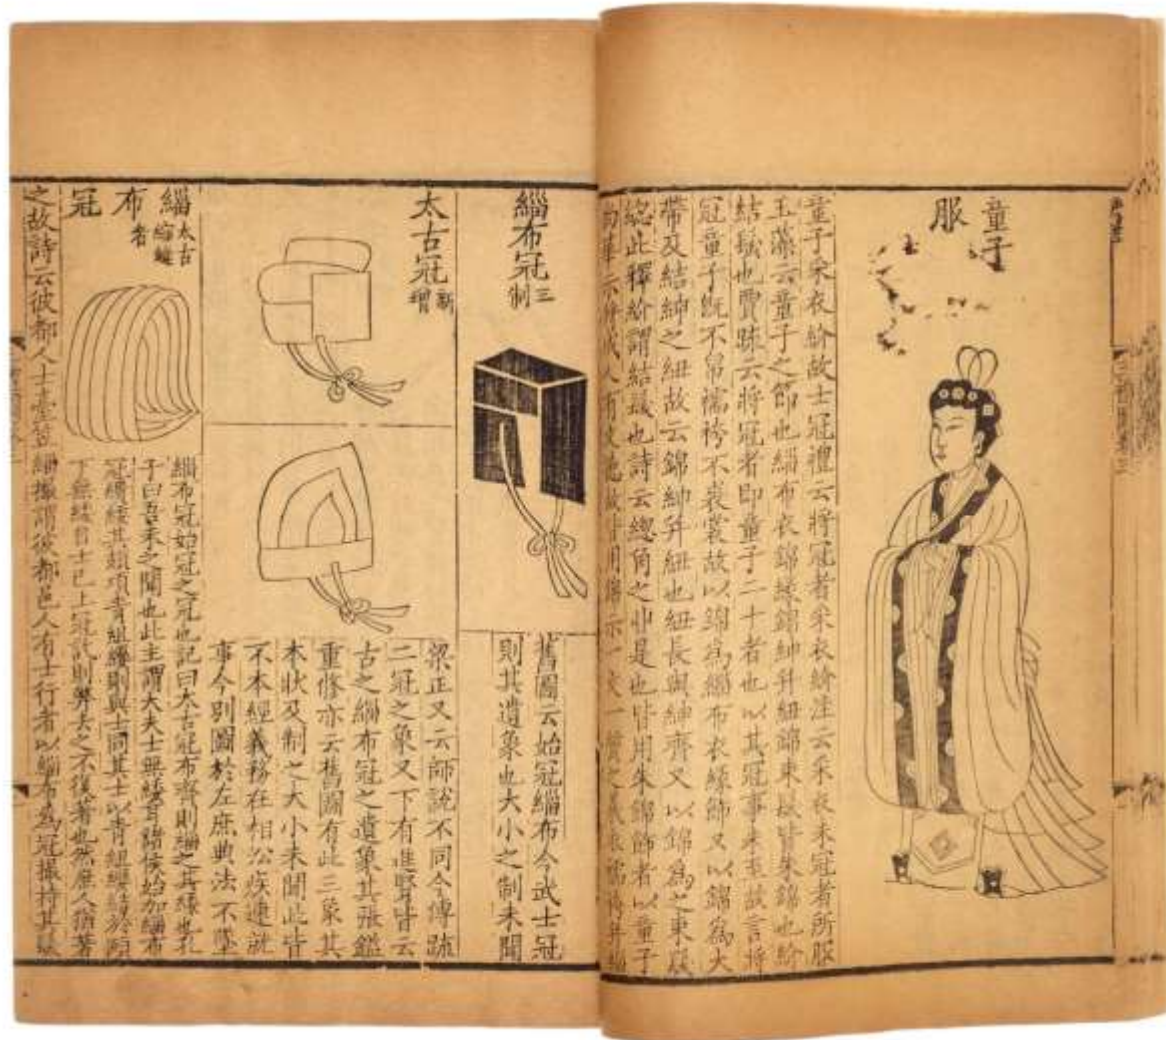 童子
服
童子采衣紒故士冠禮云將冠者采衣紒注云采衣未冠者所服
玉藻云童子之節也緇布衣錦緣錦紳并紐錦束髮皆朱錦也紒
結髮也賈疏云將冠者即童子二十者也以其冠事未至故言將
冠童子既不帛襦袴不裘裳故以錦為緇布衣緣飾又以錦為大
帶及結紳之紐故云錦紳并紐也紐長與紳齊又以錦為之束髮
總此釋紒謂結髮也詩云總角之丱是也皆用朱錦飾者以童子
緇布冠
三
制
舊圖云始冠緇布今武士冠
則其遺象也大小之制未聞
太古冠
新
增
梁正又云師說不同今傳疏
二冠之象又下有進賢皆云
古之緇布冠之遺象其張鎰
重修亦云舊圖有此三象其
本狀及制之大小未聞此皆
不本經義務在相沿疾速就
事今別圖於左庶典法不墜
緇
太古
齋
者
布
冠
緇布冠始冠之冠也記曰太古冠布齊則緇之其緌也孔
子曰吾未之聞也此主謂大夫士無緌耳諸侯始加緇布
冠繢緌其頍項青組纓則與士同其士以青組纓結於頤
下無緌自士已上冠訖則弊去之不復著也然庶人猶著
之故詩云彼都人士臺笠緇撮謂彼都邑人有士行者以緇布為冠撮持其髮